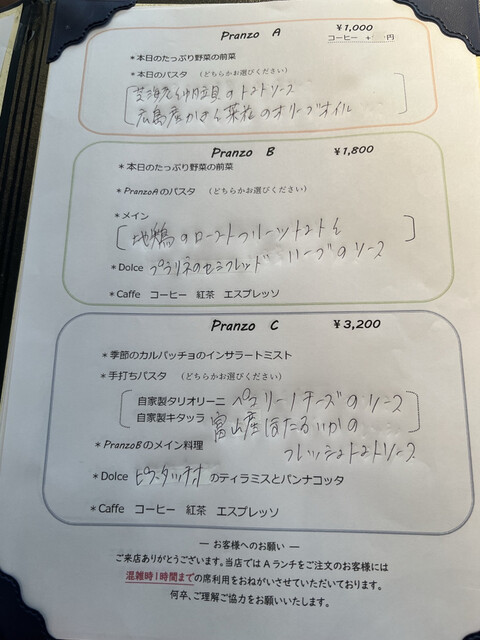 Pranzo A ¥1,000
コーヒー + 円
＊本日のたっぷり野菜の前菜
＊本日のパスタ （どちらかお選びください）
のトマトソース
広島産かきと菜花のオリーブオイル
Pranzo B ¥1,800
＊本日のたっぷり野菜の前菜
＊PranzoAのパスタ （どちらかお選びください）
＊メイン
地鶏のロースト フルーツトマトと
＊Dolce プラリネのセミフレッド ハーブのソース
＊Caffe コーヒー 紅茶 エスプレッソ
Pranzo C ¥3,200
＊季節のカルパッチョのインサラートミスト
＊手打ちパスタ （どちらかお選びください）
自家製タリオリーニ ペコリーノチーズのソース
自家製キタッラ 富山産ほたるいかの
フレッシュトマトソース
＊PranzoBのメイン料理
＊Dolce ピスタッチオのティラミスとパンナコッタ
＊Caffe コーヒー 紅茶 エスプレッソ
― お客様へのお願い ―
ご来店ありがとうございます。当店では A ランチをご注文のお客様には
混雑時1時間までの席利用をおねがいさせていただいております。
何卒、ご理解ご協力をお願いいたします。